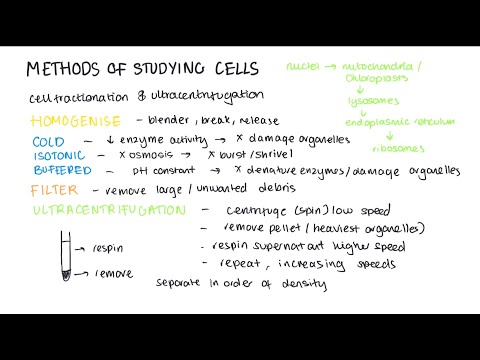 METHODS OF STUDYING CELLS
cell fractionation & ultracentrifugation
HOMOGENISE - blender, break, release
COLD - ↓ enzyme activity → x damage organelles
ISOTONIC - x osmosis → x burst/shrivel
BUFFERED - pH constant → x denature enzymes/damage organelles
FILTER - remove large / unwanted debris
ULTRACENTRIFUGATION - centrifuge (spin) low speed
- remove pellet (heaviest organelles)
- respin supernatant higher speed
- repeat, increasing speeds
separate in order of density
→ respin
→ remove
nuclei → mitochondria /
chloroplasts
↓
lysosomes
↓
endoplasmic reticulum
↓
ribosomes